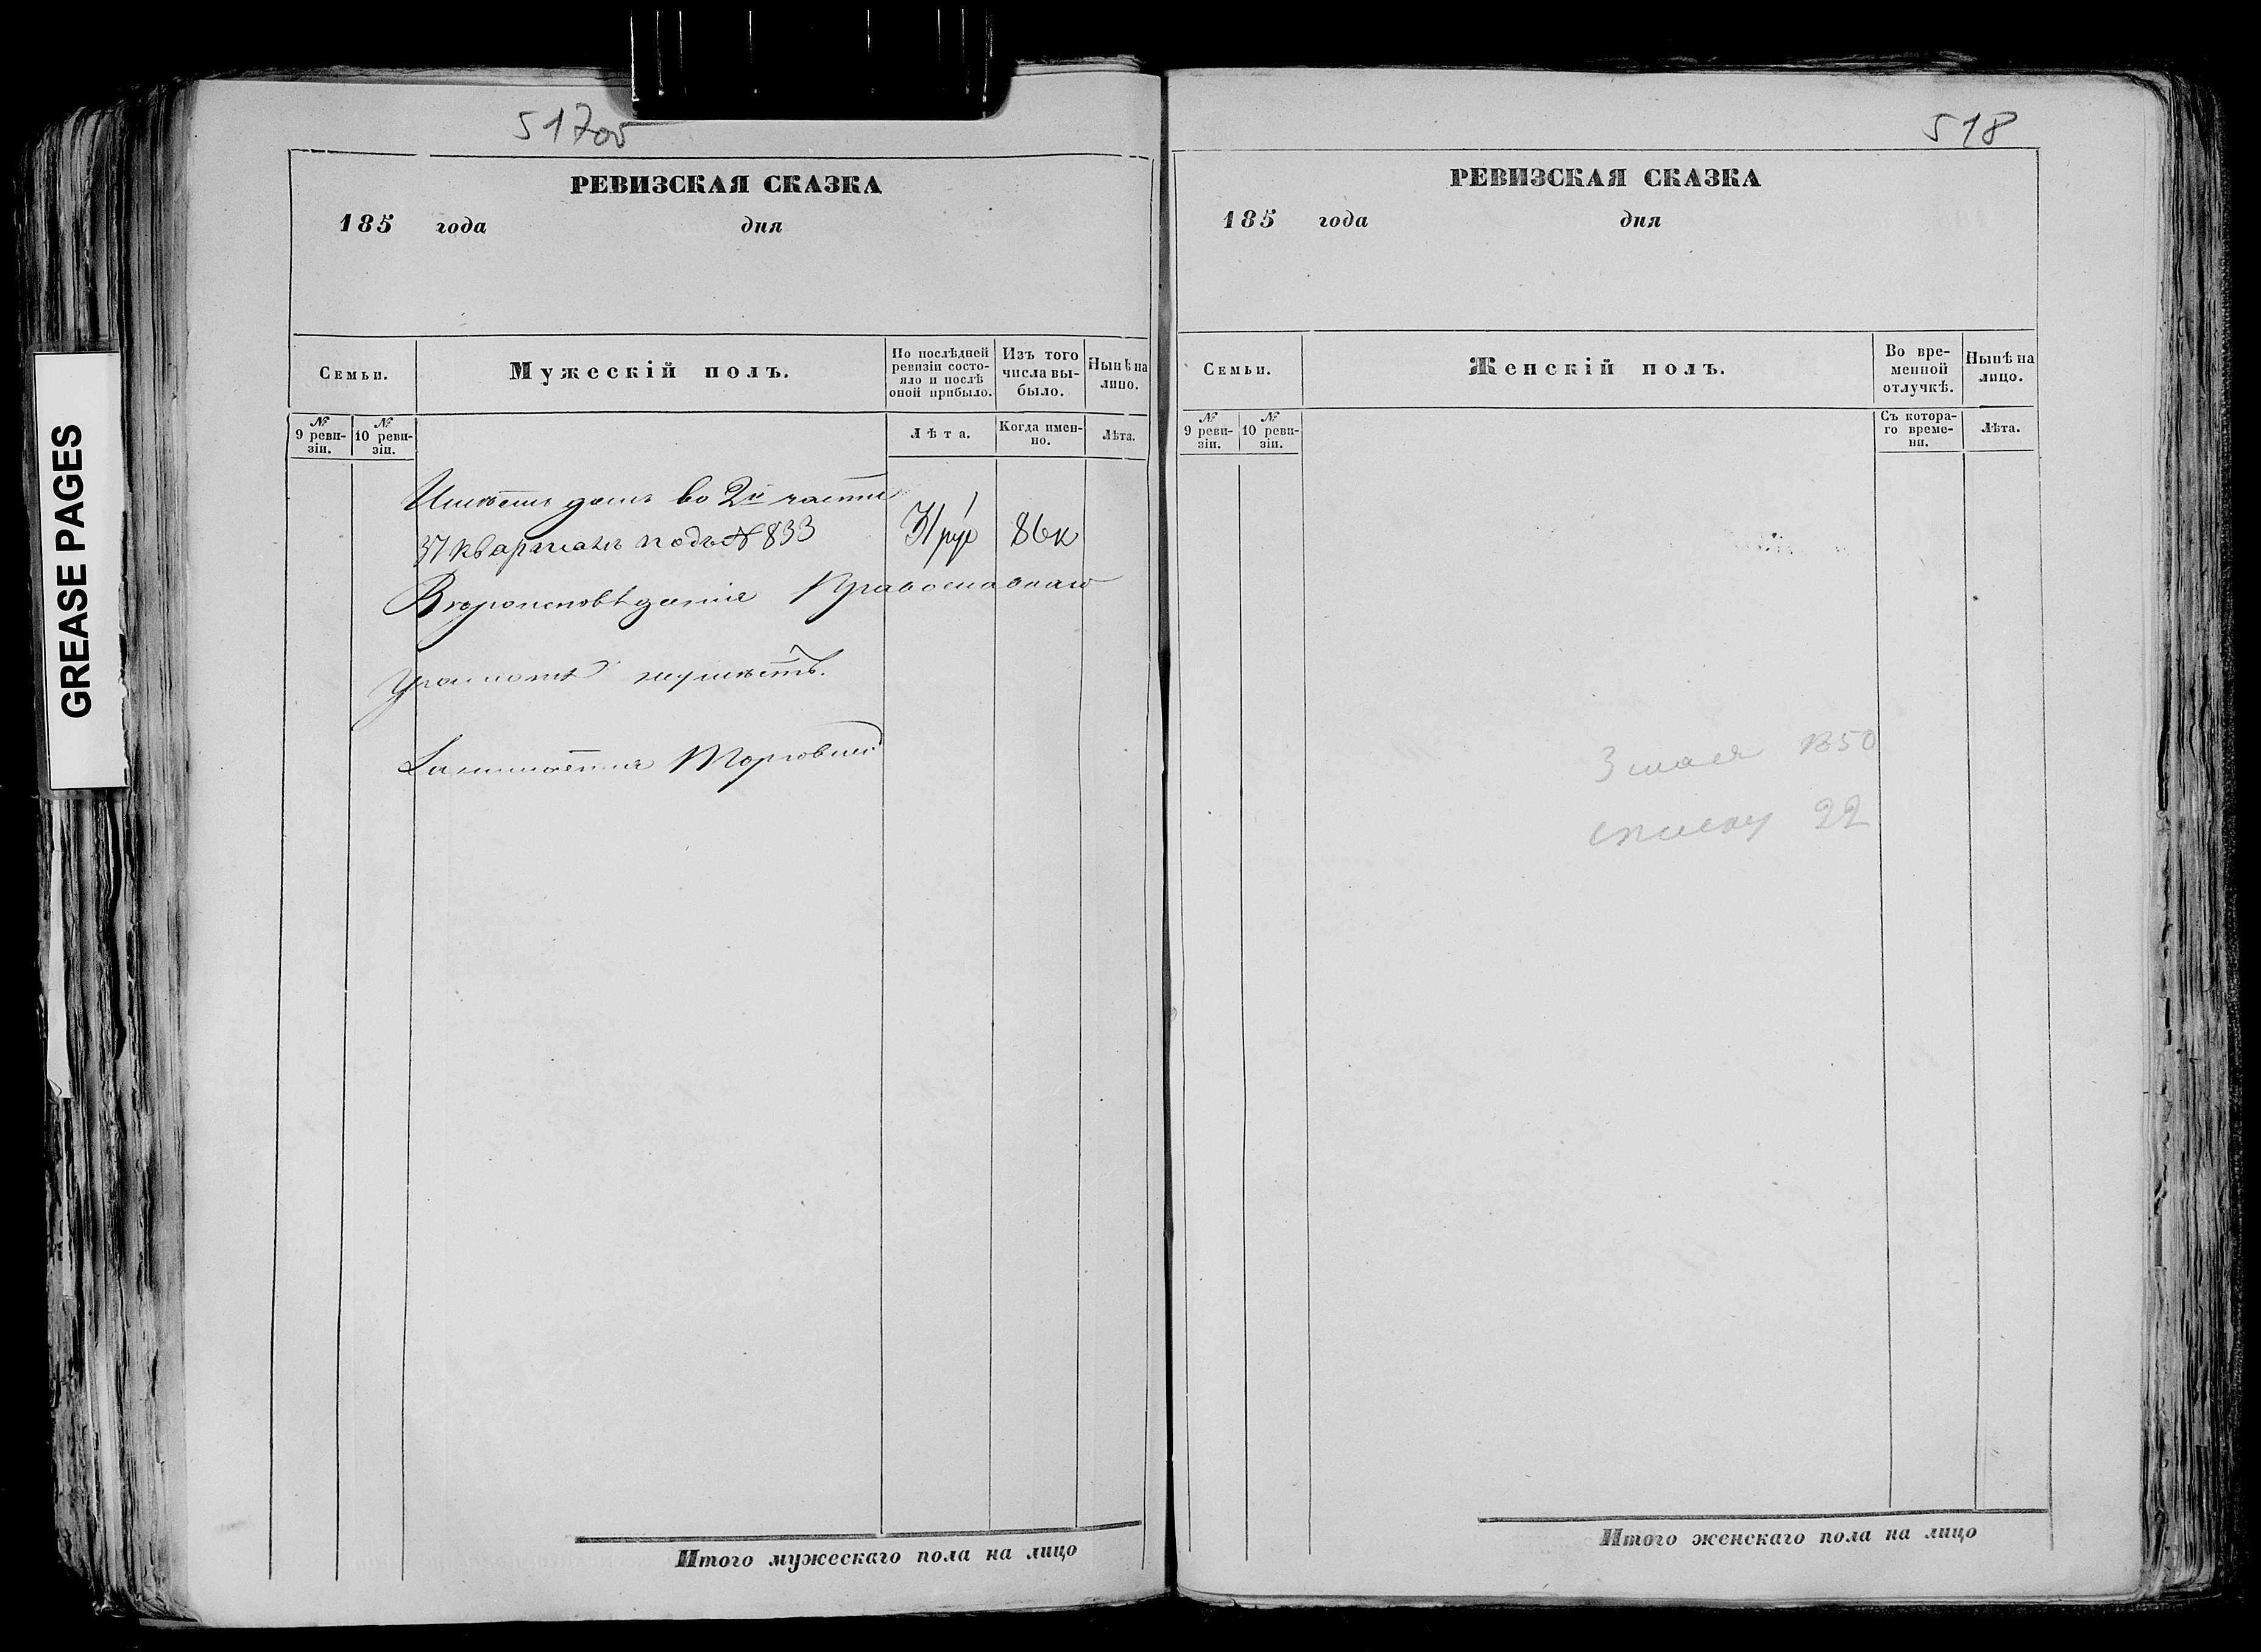 GREASE PAGES
517об
РЕВИЗСКАЯ СКАЗКА
185 года дня
Семьи.
Мужескій полъ.
По послѣдней ревизіи состояло и послѣ оной прибыло.
Изъ того числа выбыло.
Нынѣ на лицо.
№ 9 ревизіи.
№ 10 ревизіи.
Лѣта.
Когда именно.
Лѣта.
Имѣетъ домъ во 2й части
37 квартал подъ № 833 31 рур 86к
Вероисповѣданія Православнаго
Грамотѣ неумѣетъ.
Занимается Торговлей
518
РЕВИЗСКАЯ СКАЗКА
185 года дня
Семьи.
Женскій полъ.
Во временной отлучкѣ.
Нынѣ на лицо.
№ 9 ревизіи.
№ 10 ревизіи.
Съ котораго времени.
Лѣта.
3 мая 1850
списку 22
Итого мужескаго пола на лицо
Итого женскаго пола на лицо